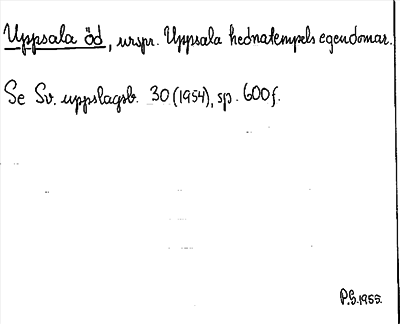 Uppsala öd, urspr. Uppsala hednatempels egendomar.
Se Sv. uppslagsb. 30 (1954), sp. 600 f.
P.G. 1955.